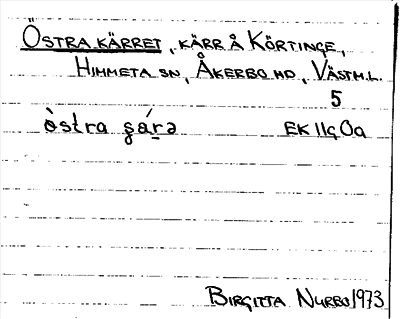 ÖSTRA KÄRRET, KÄRR Å KÖRTINGE,
HIMMETA SN, ÅKERBO HD, VÄSTM.L.
5
ò̀stra şá̱rə EK 11G 0a
BIRGITTA NURBO 1973